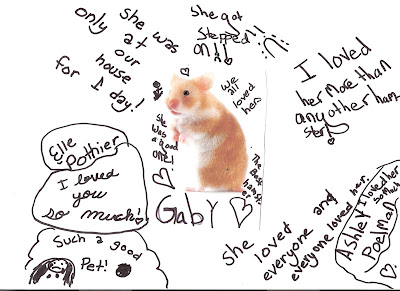 she was
only at
our
house
for 1 day!
She got
Stepped
on!!
I loved
her More than
any other ham
ster
we
all
loved
her
she
was
a good
one!
The Best
GabY
Elle
Pothier
I loved
you
so much
Such a good
Pet!
she loved
everyone and
everyone loved her.
I loved her
so Much
Ashley
Poelman